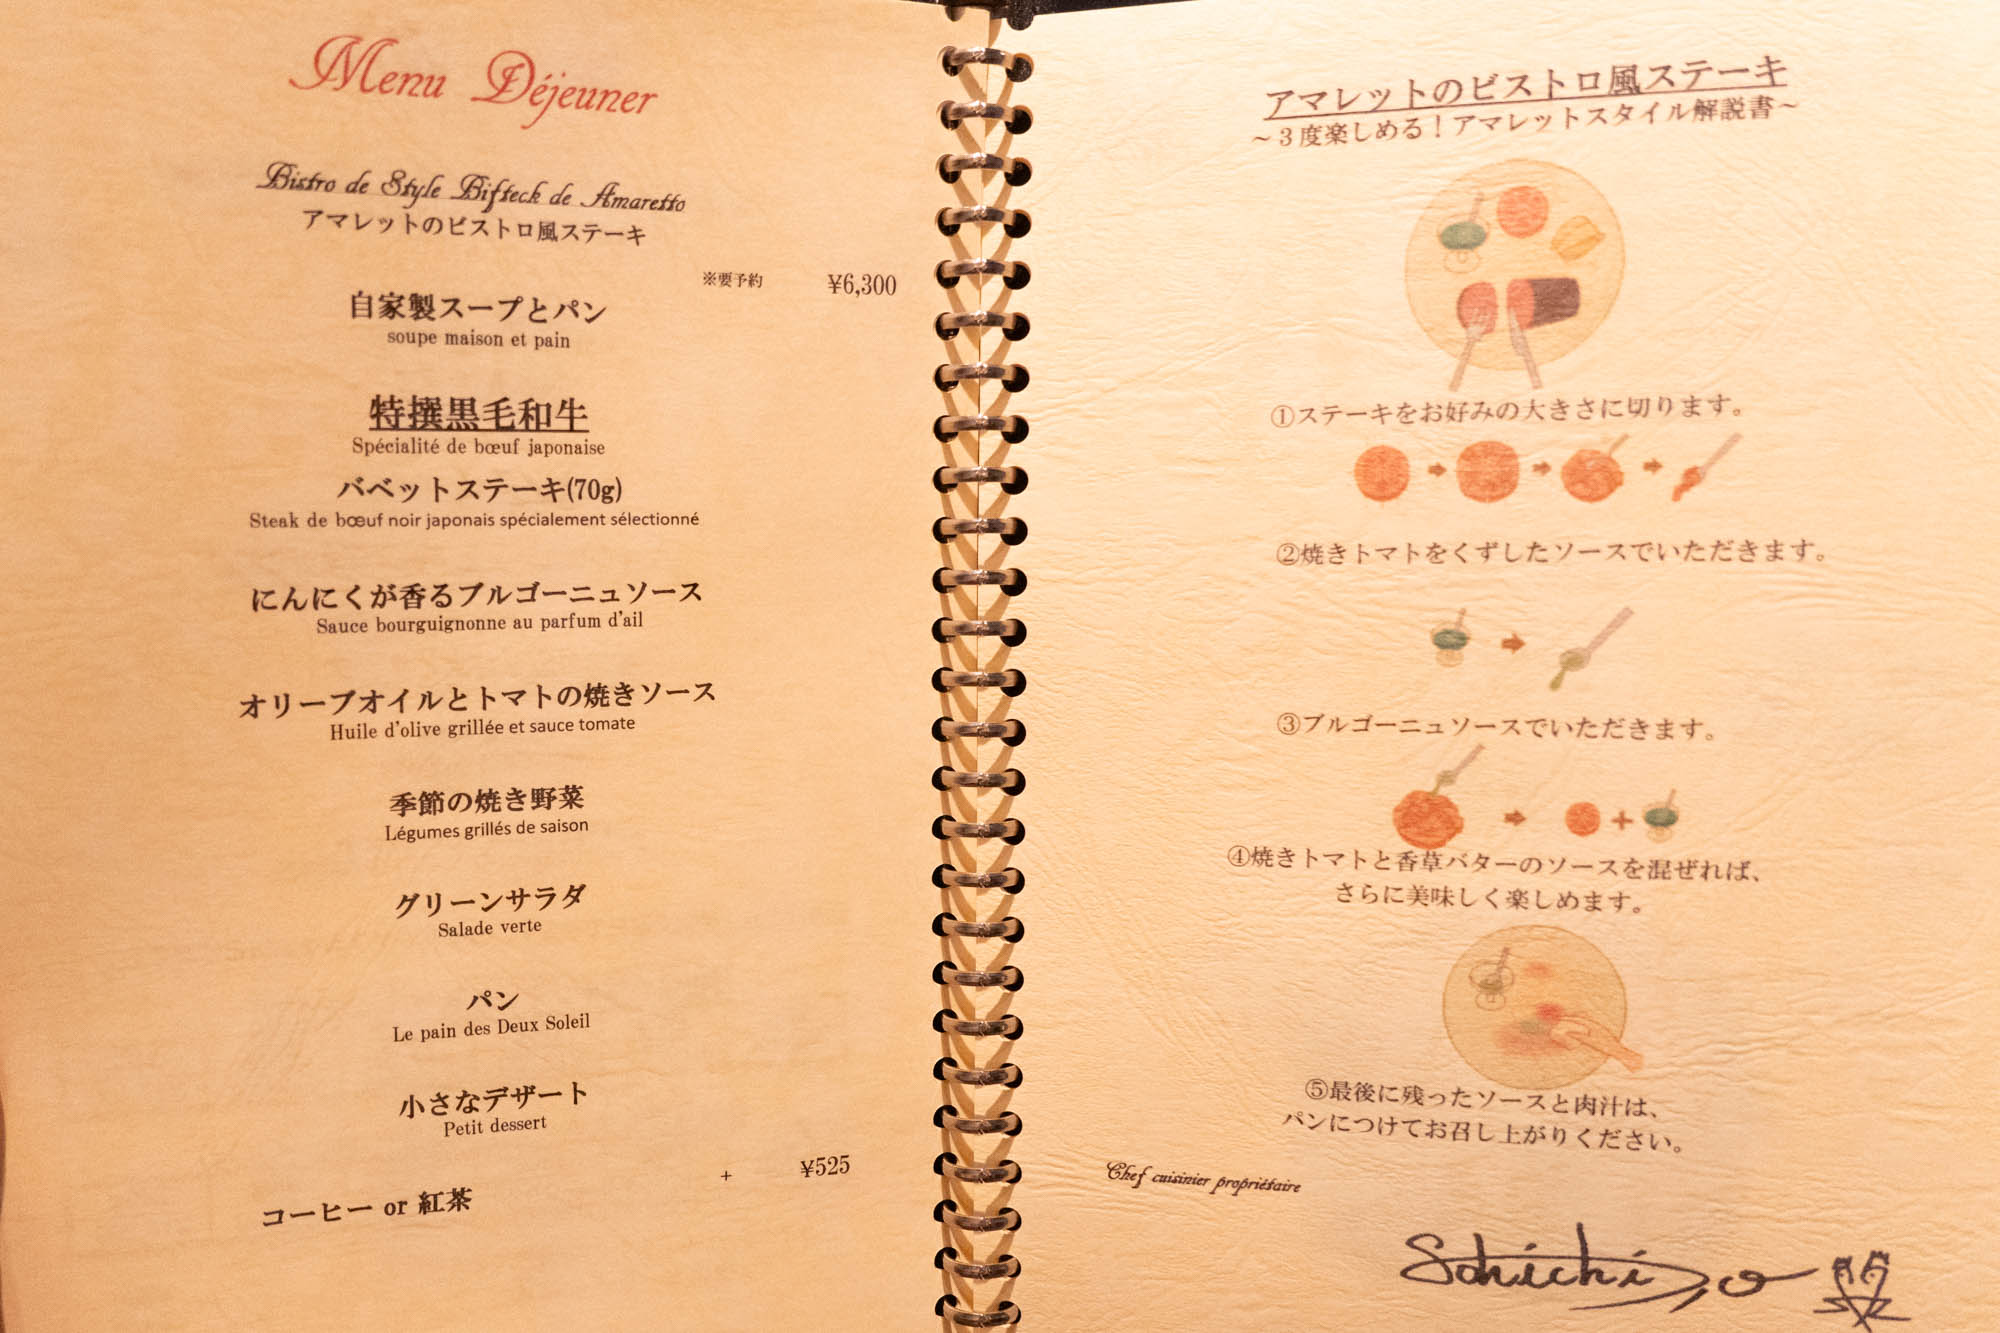 Menu Déjeuner
Bistro de Style Bifteck de Amaretto
アマレットのビストロ風ステーキ
※要予約 ¥6,300
自家製スープとパン
soupe maison et pain
特撰黒毛和牛
Spécialité de bœuf japonaise
バベットステーキ(70g)
Steak de bœuf noir japonais spécialement sélectionné
にんにくが香るブルゴーニュソース
Sauce bourguignonne au parfum d'ail
オリーブオイルとトマトの焼きソース
Huile d'olive grillée et sauce tomate
季節の焼き野菜
Légumes grillés de saison
グリーンサラダ
Salade verte
パン
Le pain des Deux Soleil
小さなデザート
Petit dessert
+ ¥525
コーヒー or 紅茶
アマレットのビストロ風ステーキ
~3度楽しめる!アマレットスタイル解説書~
①ステーキをお好みの大きさに切ります。
②焼きトマトをくずしたソースでいただきます。
③ブルゴーニュソースでいただきます。
④焼きトマトと香草バターのソースを混ぜれば、
さらに美味しく楽しめます。
⑤最後に残ったソースと肉汁は、
パンにつけてお召し上がりください。
Chef cuisinier propriétaire